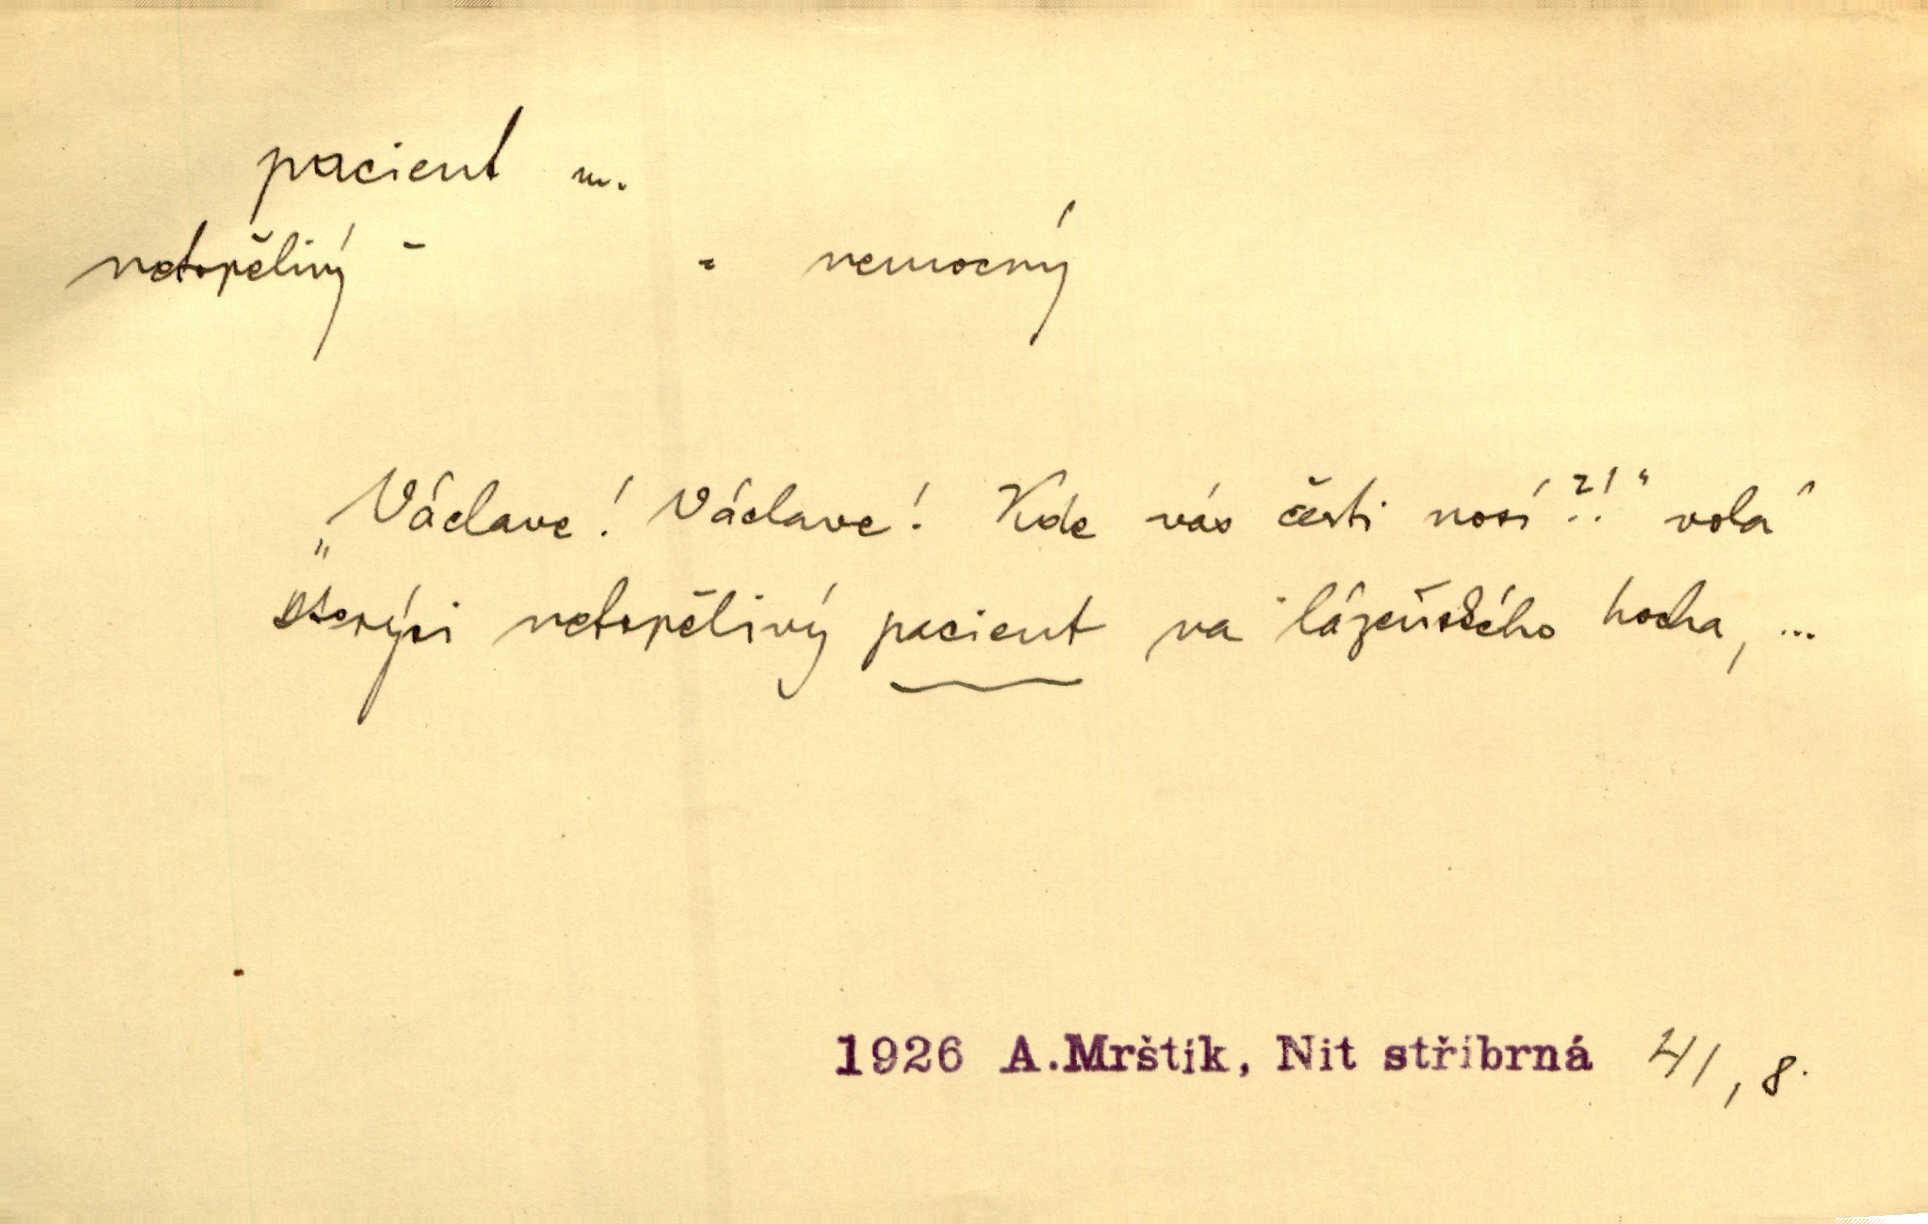 pacient m.
netrpělivý - = nemocný
„Václave! Václave! Kde vás čerti nosí?!“ volá
kterýsi netrpělivý pacient na lázeňského hocha, ...
1926 A.Mrštík, Nit stříbrná 41, 8.